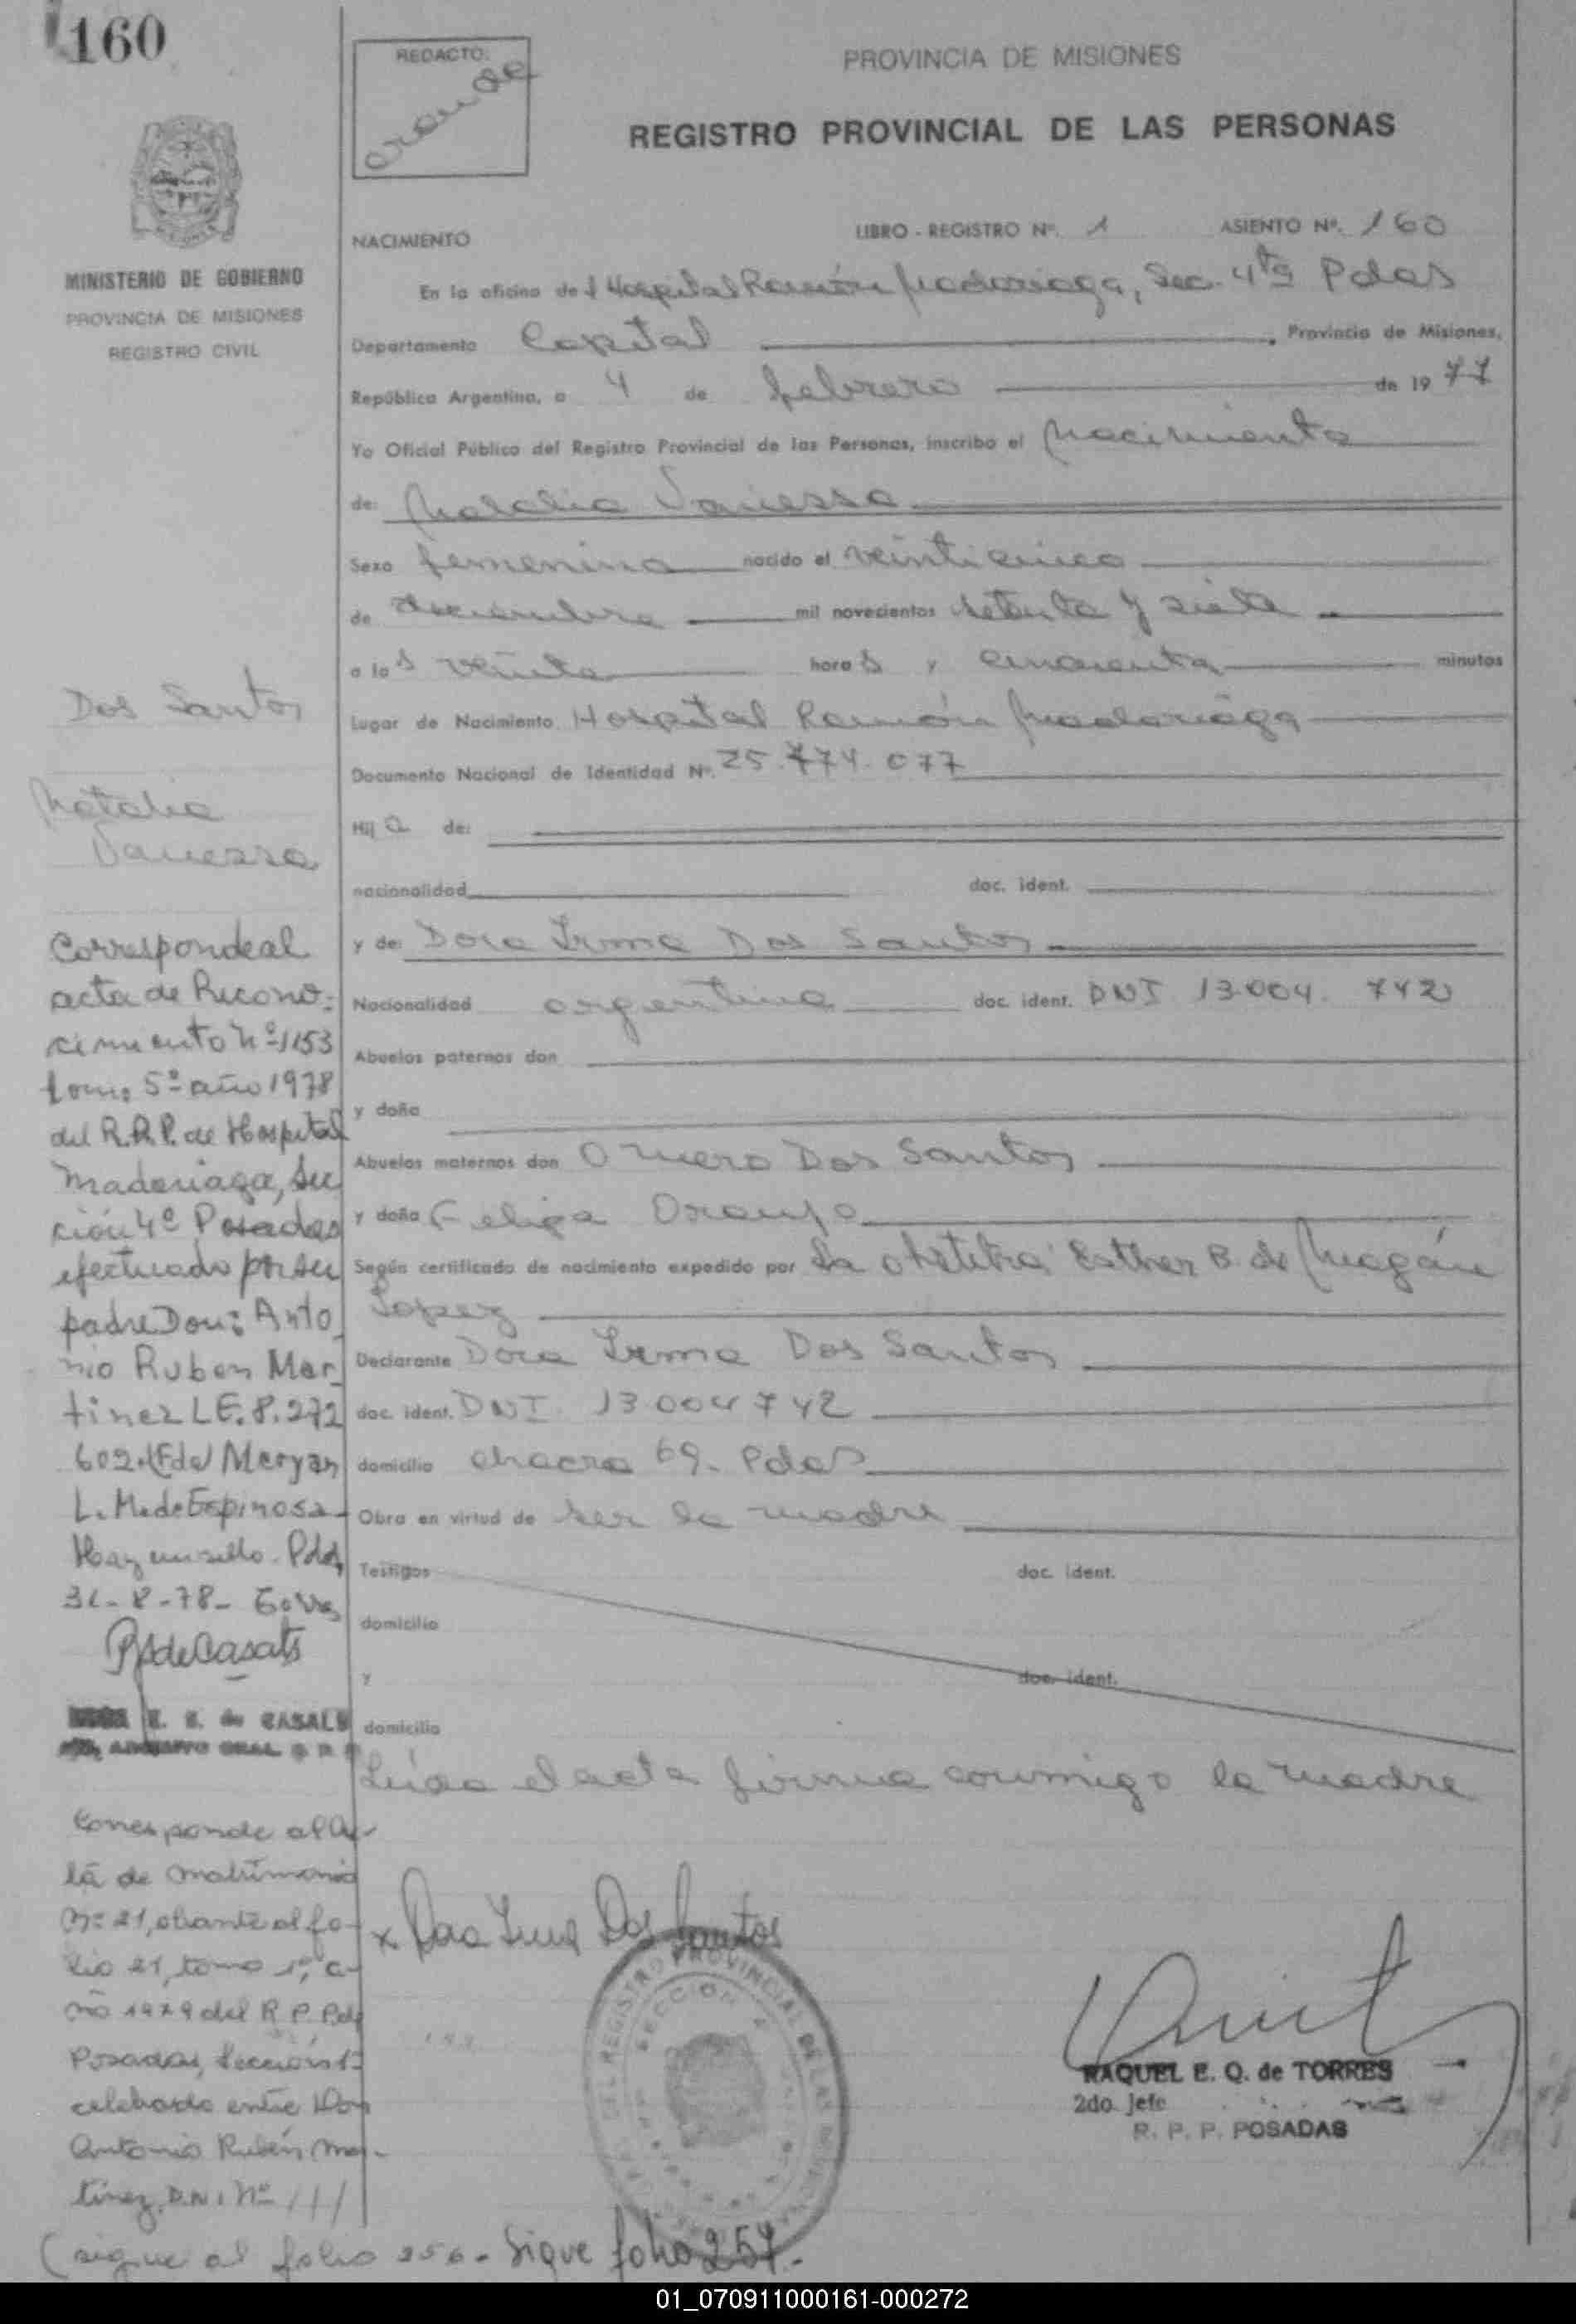 160
REDACTO:
PROVINCIA DE MISIONES
REGISTRO PROVINCIAL DE LAS PERSONAS
MINISTERIO DE GOBIERNO
PROVINCIA DE MISIONES
REGISTRO CIVIL
NACIMIENTO LIBRO - REGISTRO Nº. 1 ASIENTO Nº. 160
En la oficina del Hospital Ramón Madariaga, Sec. 4ta Pdas
Departamento Capital , Provincia de Misiones,
República Argentina, a 4 de febrero de 1977
Yo Oficial Público del Registro Provincial de las Personas, inscribo el Nacimiento
de: Natalia Vanessa
Sexo femenino nacido el veinticinco
de diciembre mil novecientos setenta y siete
a las veinte horas y cincuenta minutos
Lugar de Nacimiento Hospital Ramón Madariaga
Documento Nacional de Identidad Nº. 25.774.077
Hija de:
nacionalidad doc. ident.
y de: Dora Irma Dos Santos
Nacionalidad argentina doc. ident. DNI 13.004.742
Abuelos paternos don
y doña
Abuelos maternos don Dos Santos
y doña Felipa
Según certificado de nacimiento expedido por la obstetra Esther B. de Magán
Lopez
Declarante Dora Irma Dos Santos
doc. ident. DNI 13004742
domicilio chacra 69. Pdas
Obra en virtud de ser la madre
Testigos doc. ident.
domicilio
y doc. ident.
domicilio
Leída el acta firma conmigo la madre
Dos Santos
Natalia
Vanessa
Corresponde al
acta de Recono-
cimiento Nº 1153
tomo 5º año 1978
del R.P.P. de Hospital
Madariaga, Sec
ción 4º Posadas
efectuado por su
padre Don: Anto
nio Ruben Mar
tinez L.E. 8.272
602. (Fdo) Meryan
L. M. de Espinosa
Hay un sello. Pdas,
31-8-78-
E. S. de CASALS
Corresponde al Ac-
ta de matrimonio
Nº 21, obrante al fo-
lio 21, tomo 1º, a-
ño 1979 del R.P.P. de
Posadas, Sección 1ª
celebrado entre Don
Antonio Rubén Mar-
tinez, D.N.I. Nº
(sigue al folio 256 - Sigue folio 257.-
x Dora Irma Dos Santos
REGISTRO PROVINCIAL DE LAS PERSONAS
SECCION
RAQUEL E. Q. de TORRES
2do. Jefe
R. P. P. POSADAS
01_070911000161-000272